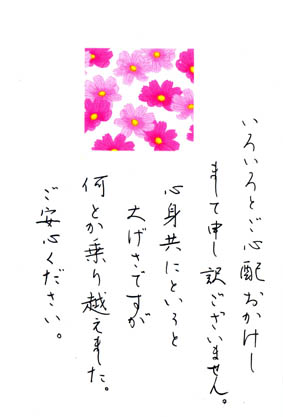 いろいろとご心配おかけし
まして申し訳ございません。
心身共にというと
大げさですが
何とか乗り越えました。
ご安心ください。